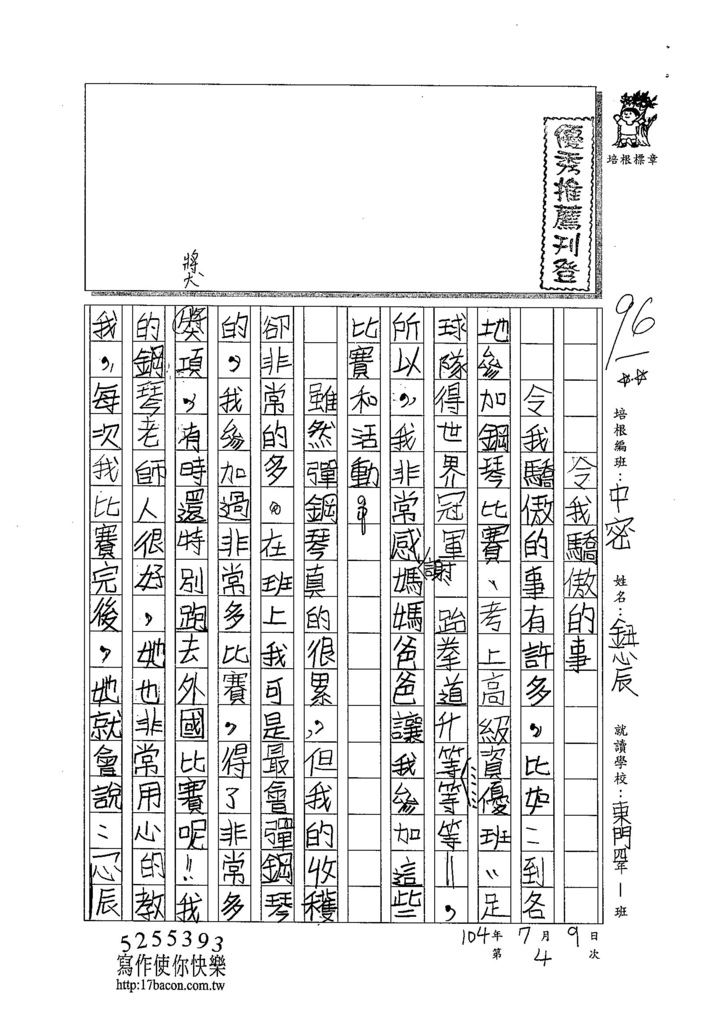 培根標章
優秀推薦刊登
96
培根編班：中密 姓名：鈕心辰 就讀學校：東門四年一班
令我驕傲的事
令我驕傲的事有許多，比如：到各
地參加鋼琴比賽、考上高級資優班、足
球隊得世界冠軍 跆拳道升等等等，
所以，我非常感謝媽媽爸爸讓我參加這些
比賽和活動。
雖然彈鋼琴真的很累，但我的收穫
卻非常的多。在班上我可是最會彈鋼琴
的，我參加過非常多比賽，得了非常多
獎
獎項，有時還特別跑去外國比賽呢！！我
的鋼琴老師人很好，她也非常用心的教
我，每次我比賽完後，她就會說：「心辰
104年7月9日
第4次
5255393
寫作使你快樂
http:17bacon.com.tw